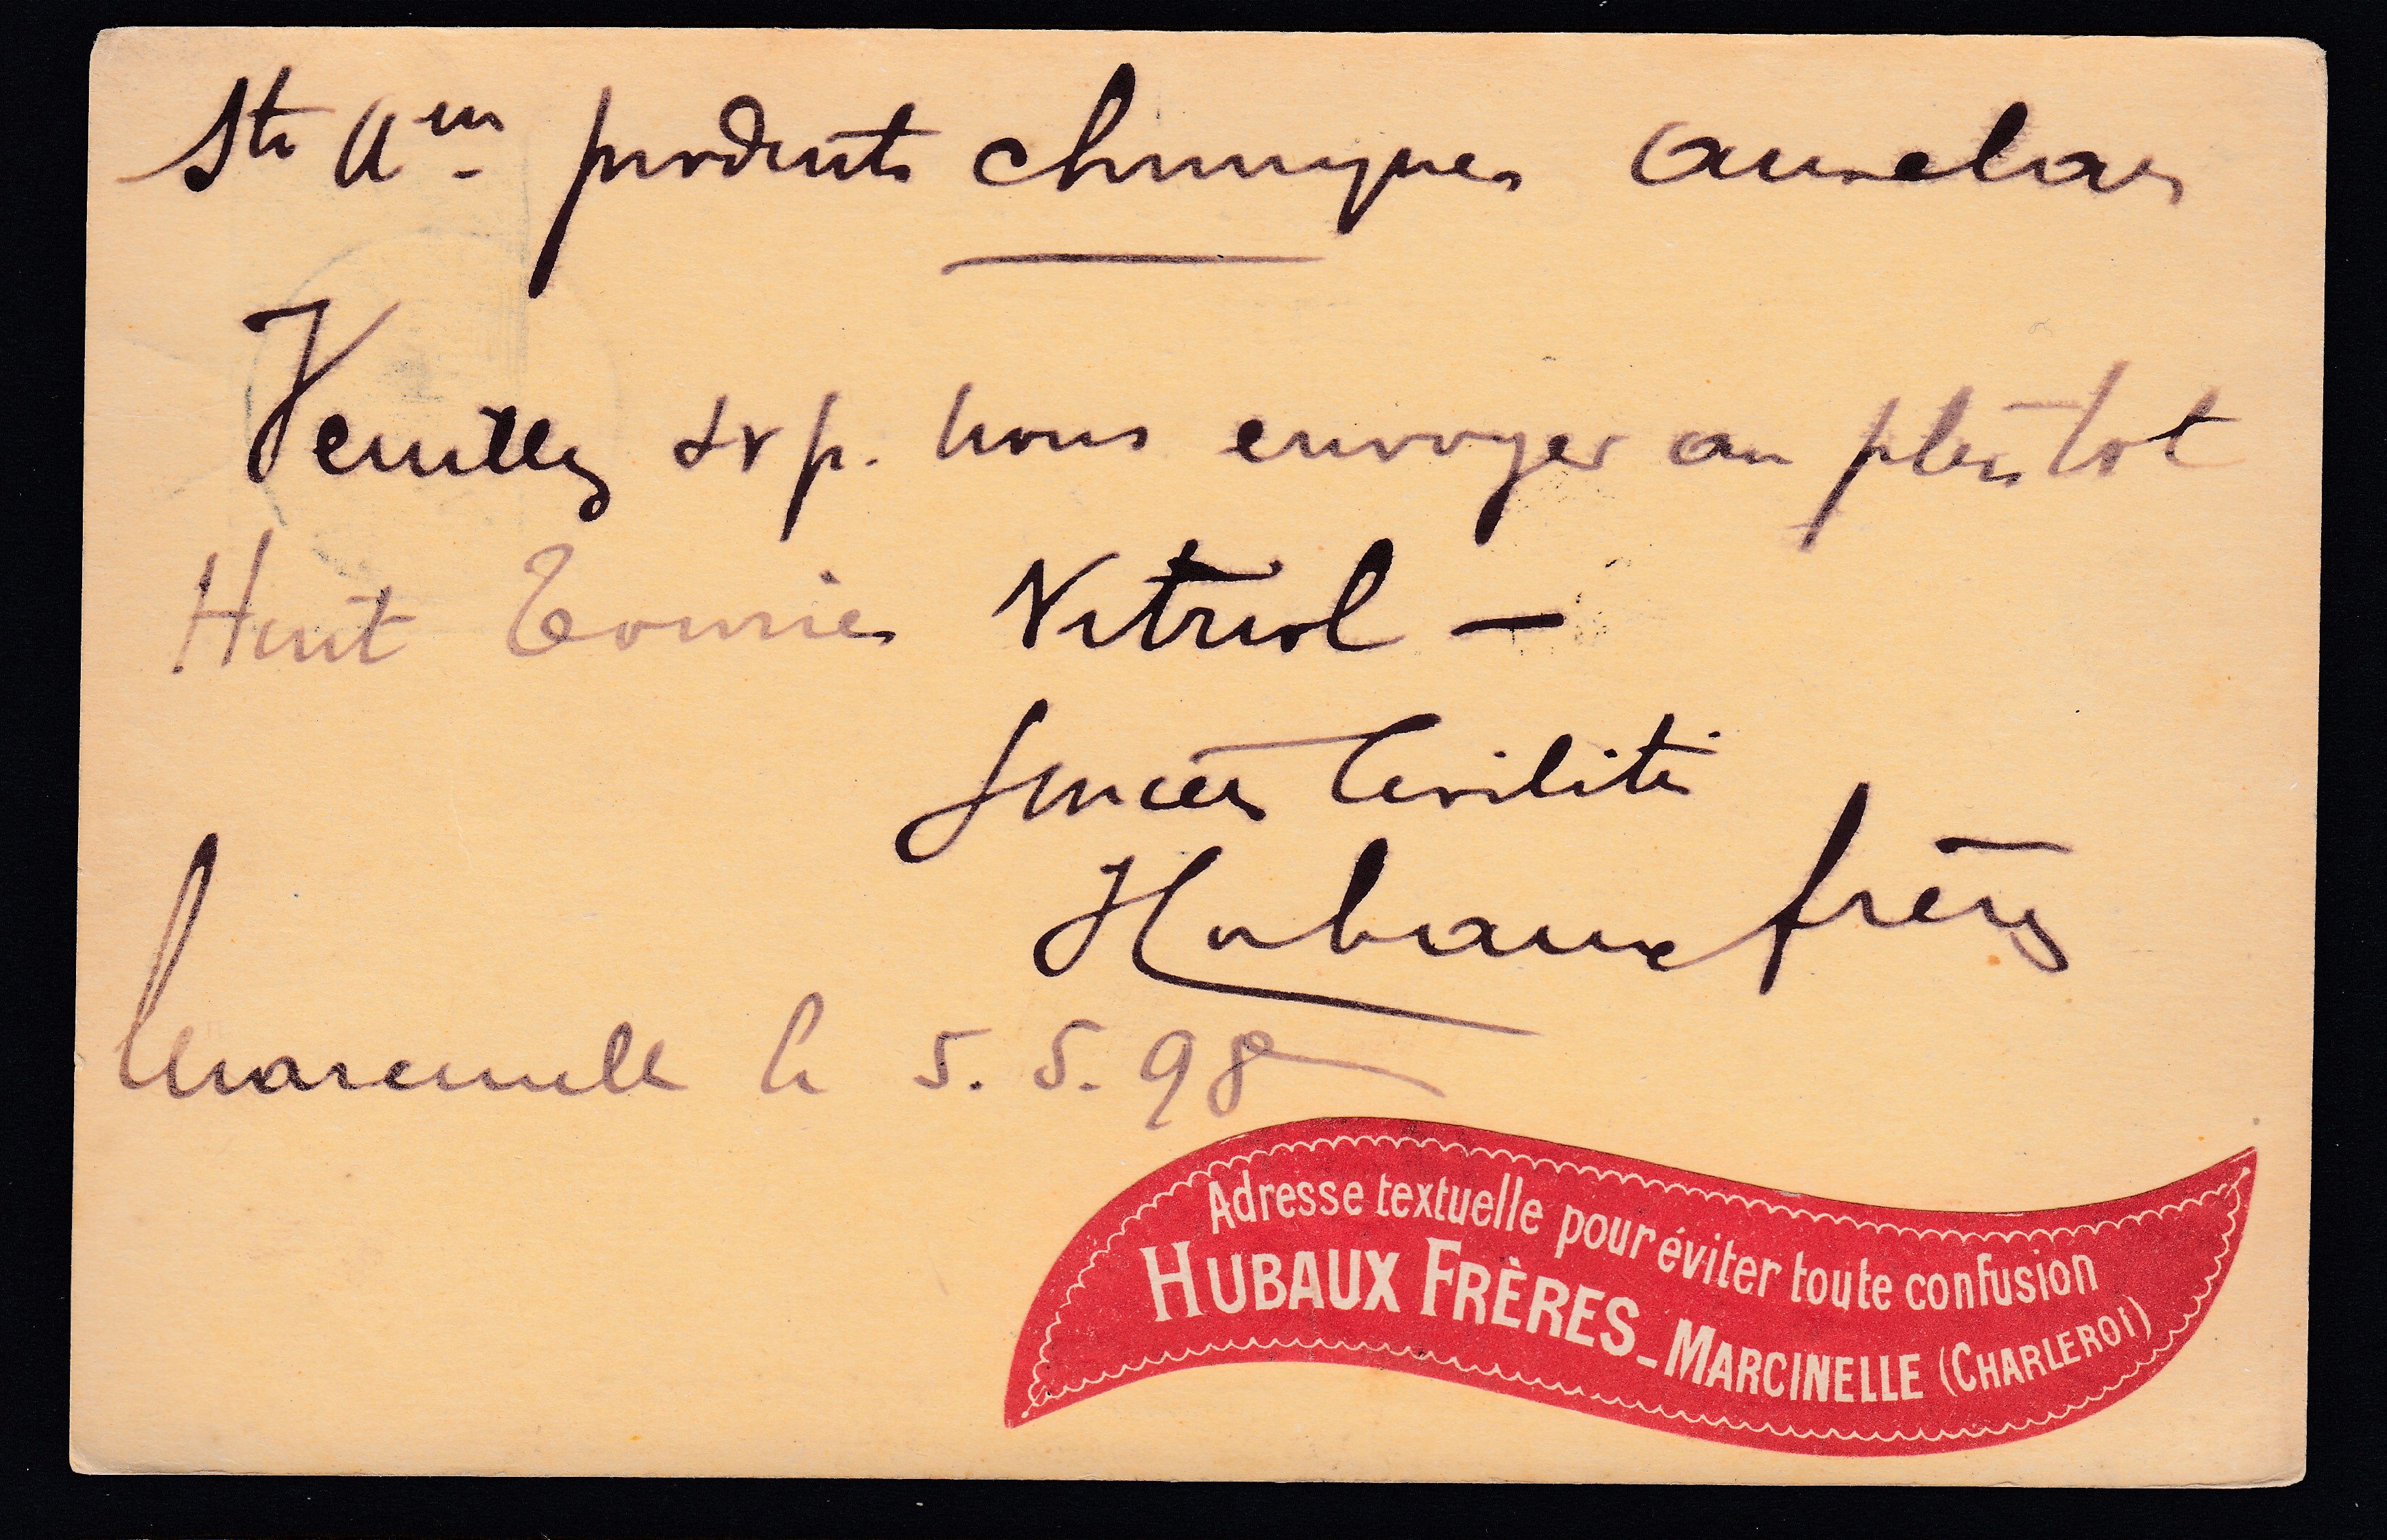 Sté Ame produits chimiques Auvelais
Veuillez svp. nous envoyer au plus tot
Huit Touries Vitriol —
Sincères Civilités
Hubaux frères
Marcinelle le 5.5.98
Adresse textuelle pour éviter toute confusion
HUBAUX FRÈRES_MARCINELLE (CHARLEROI)